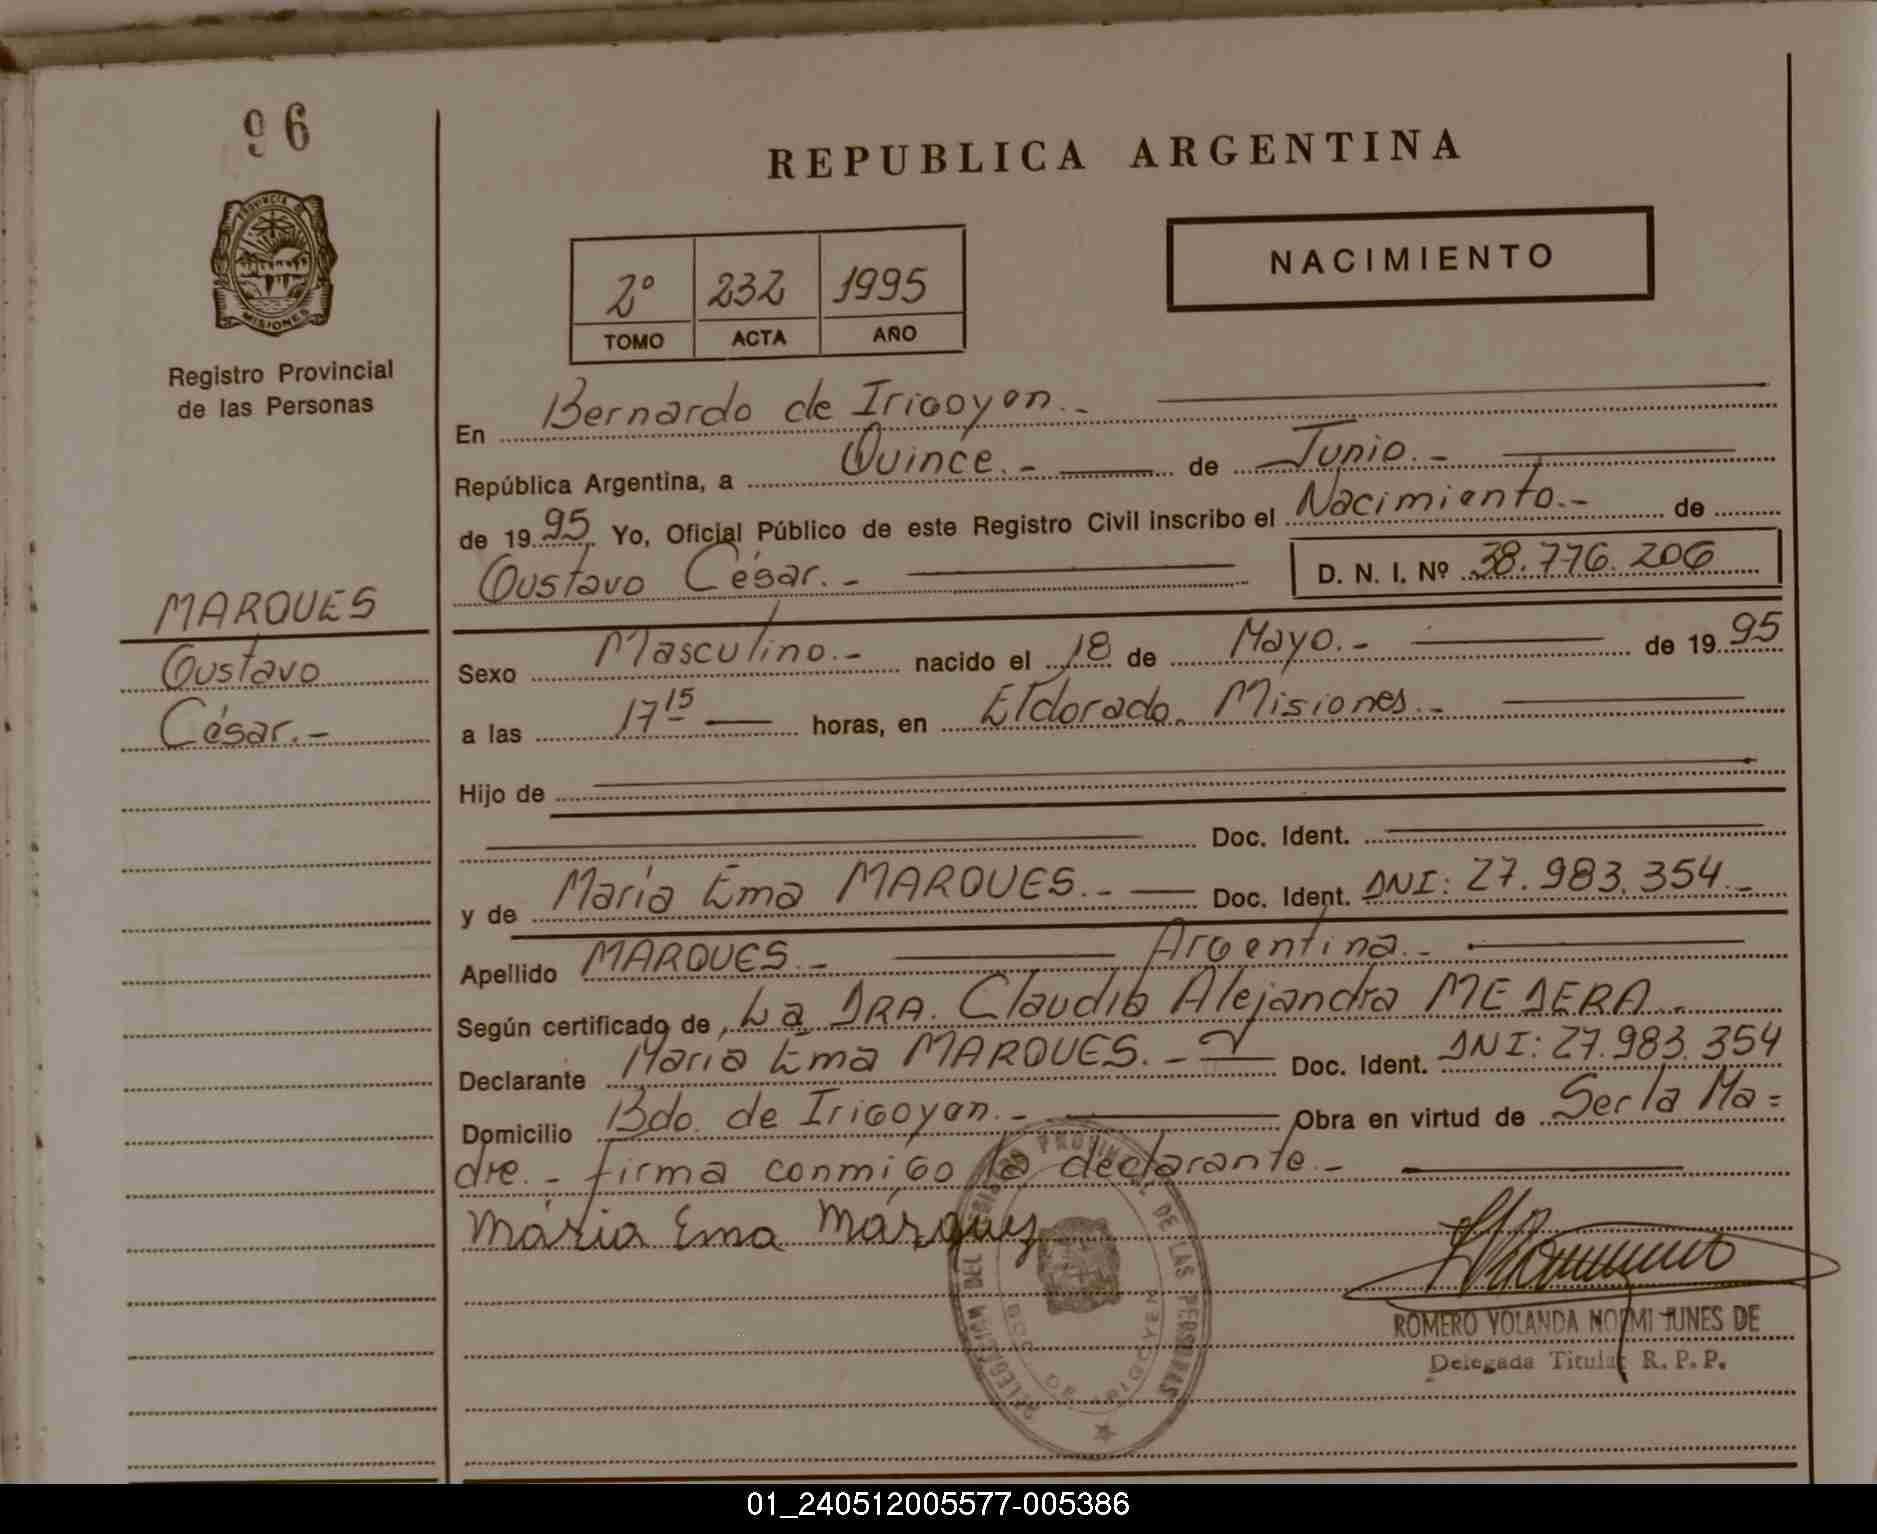 96
REPUBLICA ARGENTINA
PROVINCIA DE
MISIONES
Registro Provincial
de las Personas
2º 232 1995
TOMO ACTA AÑO
NACIMIENTO
En Bernardo de Irigoyen.-
República Argentina, a Quince.- de Junio.-
de 1995 Yo, Oficial Público de este Registro Civil inscribo el Nacimiento.- de
Gustavo César.- D. N. I. Nº 38.776.206
MARQUES
Gustavo
César.-
Sexo Masculino.- nacido el 18 de Mayo.- de 1995
a las 17 15 horas, en Eldorado, Misiones.-
Hijo de
Doc. Ident.
y de María Ema MARQUES.- Doc. Ident. DNI: 27.983.354.-
Apellido MARQUES.- Argentina.-
Según certificado de La DRA. Claudia Alejandra MEDERA.-
Declarante María Ema MARQUES.- Doc. Ident. DNI: 27.983.354
Domicilio Bdo. de Irigoyen.- Obra en virtud de Ser la Ma=
dre.- firma conmigo la declarante.-
María Ema Márquez
DELEGACION DEL REGISTRO PROVINCIAL DE LAS PERSONAS
BDO. DE IRIGOYEN
ROMERO YOLANDA NOEMI JUNES DE
Delegada Titular R. P. P.
01_240512005577-005386